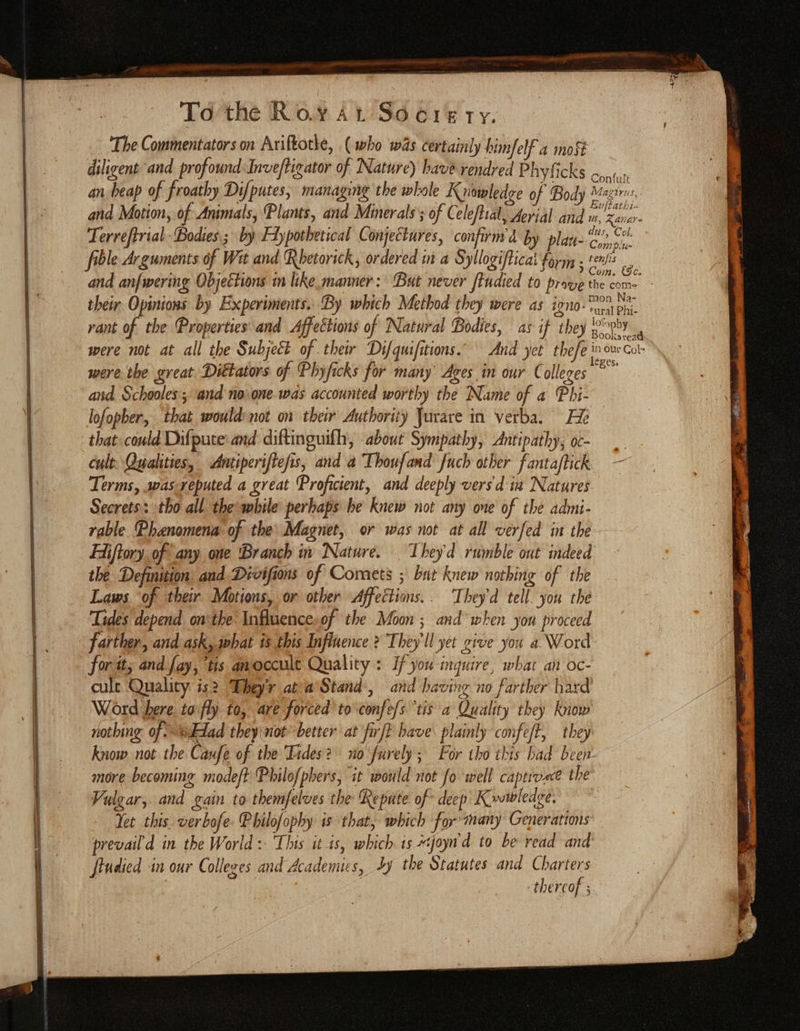 To the ROYAL SOCIETY.
The Commentators on Ariſtotle, (who was certainly himſelf a moſt
diligent and profound Inveſtigator of Nature) have rendred Phyſicks
an heap of froathy Diſputes, managing the whole Knowledge of Body
and Motion, of Animals, Plants, and Minerals; of Celeſtial, Aerial and
Terreſtrial Bodies; by Hypothetical Conjectures, confirm'd by plau-
ſible Arguments of Wit and Rhetorick, ordered in a Syllogiſtical form;
and anſwering Objections in like manner: But never ſtudied to prove
their Opinions by Experiments. By which Method they were as igno-
rant of the Properties and Affections of Natural Bodies, as if they
were not at all the Subject of their Diſquiſitions. And yet theſe
were the great Dictators of Phyſicks for many Ages in our Colleges
and Schooles; and no one was accounted worthy the Name of a Phi-
loſopher, that would not on their Authority Jurare in verba. He
that could Diſpute and diſtinguiſh, about Sympathy, Antipathy, oc-
cult Qualities, Antiperiſteſis, and a Thouſand ſuch other fantaſtick
Terms, was reputed a great Proficient, and deeply vers'd in Natures
Secrets: tho all the while perhaps he knew not any one of the admi-
rable Phænomena of the Magnet, or was not at all verſed in the
Hiſtory of any one Branch in Nature. They'd rumble out indeed
the Definition and Diviſions of Comets; but knew nothing of the
Laws of their Motions, or other Affections. They'd tell you the
Tides depend on the Influence of the Moon; and when you proceed
farther, and ask, what is this Influence? They'll yet give you a Word
for it, and ſay, 'tis an occult Quality: If you inquire, what an oc-
cult Quality is? They'r at a Stand, and having no farther hard
Word here to fly to, are forced to confeſs 'tis a Quality they know
nothing of. Had they not better at firſt have plainly confeſt, they
know not the Cauſe of the Tides? no ſurely; For tho this had been
more becoming modeſt Philoſphers, it would not ſo well captivate the
Vulgar, and gain to themſelves the Repute of deep Knowledge.
Yet this verboſe Philoſophy is that, which for many Generations
prevail'd in the World: This it is, which is injoyn'd to be read and
ſtudied in our Colleges and Academies, by the Statutes and Charters
thereof;
Conſult
Magirus,
Euſtathi-
us, Zanar-
dus, Col.
Complu-
tenſis
Com. &c.
the com-
mon Na-
tural Phi-
loſophy
Books read
in our Col-
leges.